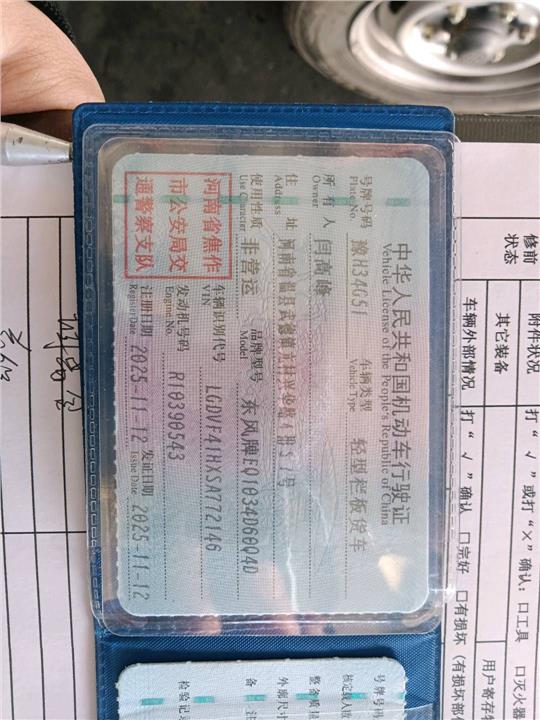 中华人民共和国机动车行驶证
Vehicle License of the People's Republic of China
号牌号码 豫H34G51 车辆类型 轻型栏板货车
Plate No. Vehicle Type
所有人 闫高峰
Owner
住址 河南省温县武德镇
Address
使用性质 非营运 品牌型号 东风牌EQ1034D60Q4D
Use Character Model
河南省焦作
市公安局交
通警察支队
车辆识别代号 LGDVF41HXSA772146
VIN
发动机号码 R10390543
Engine No.
注册日期 2025-11-12 发证日期 2025-11-12
Register Date Issue Date
号牌号码
核定载人数
整备质量
外廓尺寸
备注
检验记录
修前
状态
附件状况 打“√”或打“×”确认：口工具 口灭火器
其它装备
用户寄存
车辆外部情况 打“√”确认 口完好 口有损坏（有损坏部